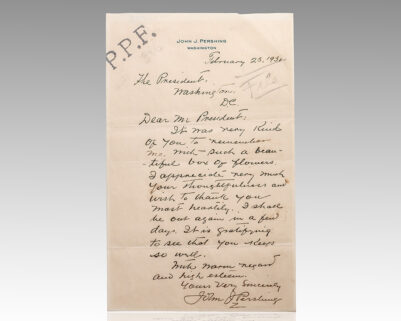 P.P.F.
JOHN J. PERSHING
WASHINGTON
February 25, 193
The President,
Washington,
DC
Dear Mr President:
It was very kind
of you to remember
me with such a beau-
-tiful box of flowers.
I appreciate very much
your thoughtfulness and
wish to thank you
most heartily. I shall
be out again in a few
days. It is gratifying
to see that you keep
so well.
With warm regard
and high esteem.
Yours very sincerely
John J Pershing